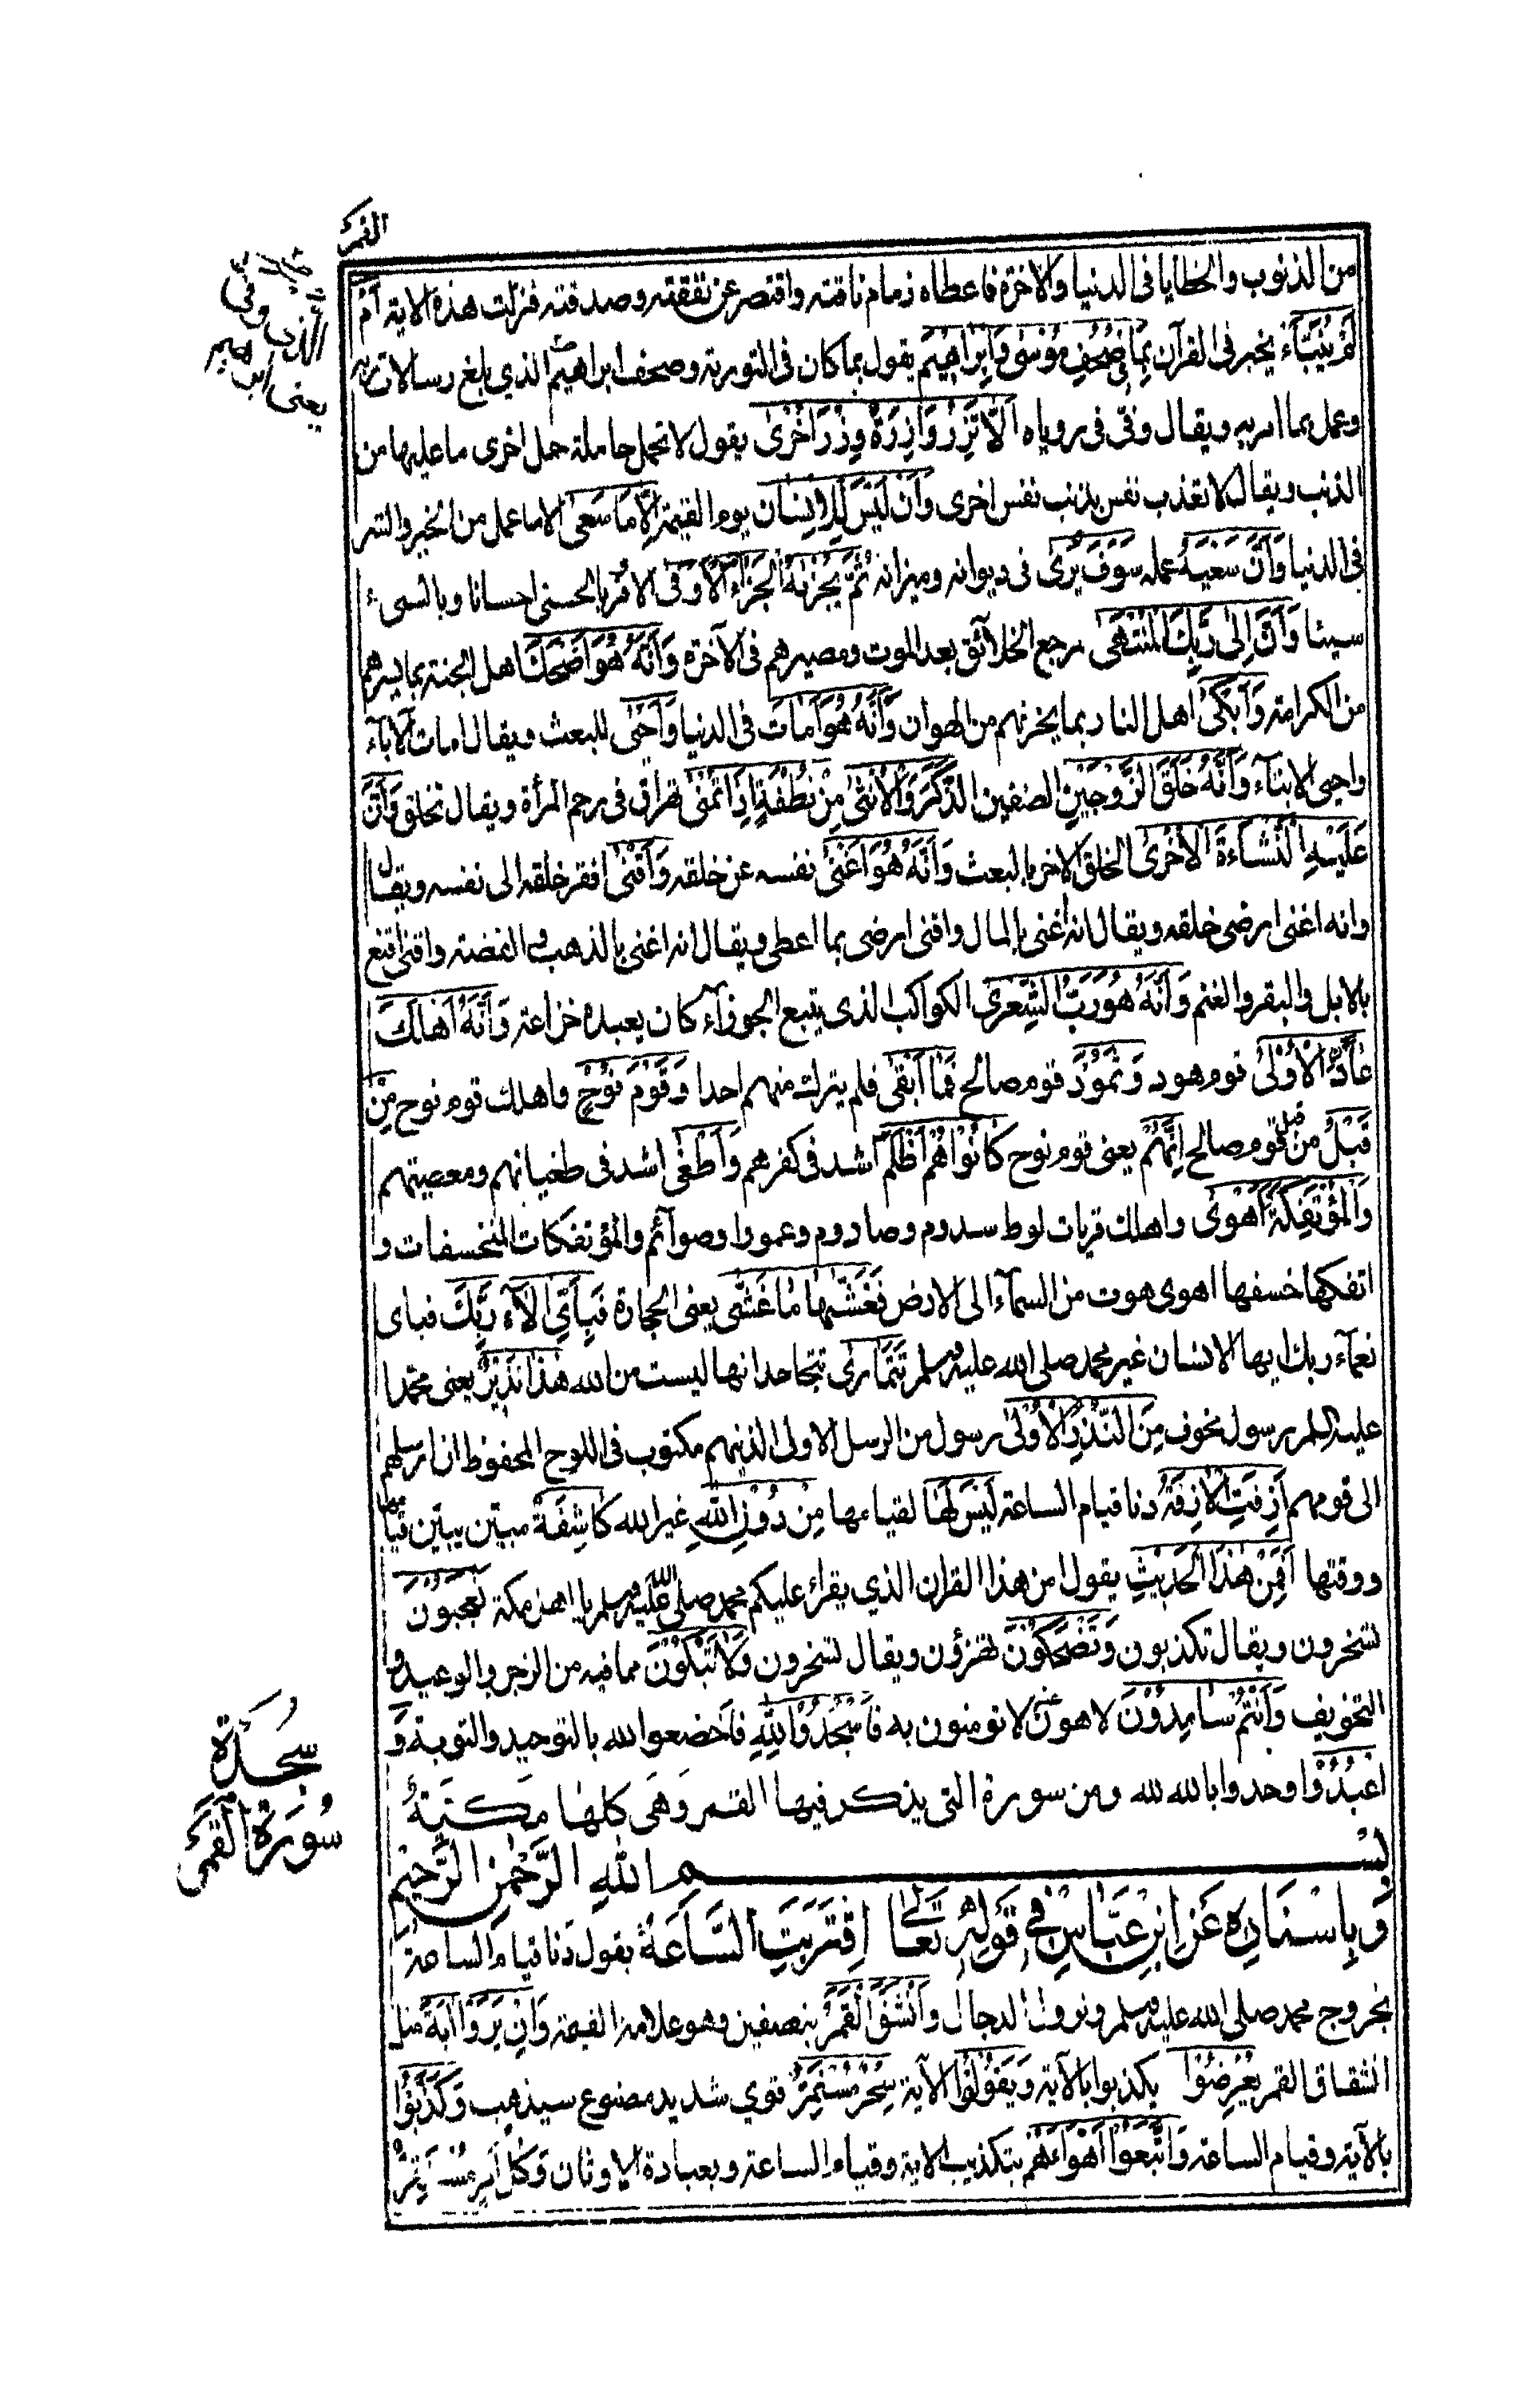 القمر
من الذنوب والخطايا فى الدنيا والاخرة فاعطاه زمام ناقته واقتصر عن نفقته وصدقته فنزلت هذه الاية اَمْ
لَمْ يُنَبَّاْء يخبر فى القرآن بِمَا فِىْ صُحُفِ مُوْسٰى وَاِبْرَاهِيْمَ يقول بما كان فى التورية وصحف ابراهيم الذي بلغ رسالات ربه
وعمل بما امر به ويقال وفّى فى روياه اَلَّا تَزِرُ وَازِرَةٌ وِزْرَ اُخْرٰى يقول لا تحمل حاملة حمل اخرى ما عليها من
الذنب ويقال لا تعذب نفس بذنب نفس اخرى وَاَنْ لَيْسَ لِلْاِنْسَانِ يوم القيمة اِلَّا مَا سَعٰى الا ما عمل من الخير والشر
فى الدنيا وَاَنَّ سَعْيَهُ عمله سَوْفَ يُرٰى فى ديوانه وميزانه ثُمَّ يُجْزٰىهُ الْجَزَاءَ الْاَوْفٰى الاوفر بالحسنى احسانا وبالسىء
سيئا وَاَنَّ اِلٰى رَبِّكَ الْمُنْتَهٰى مرجع الخلآئق بعد الموت ومصيرهم فى الآخرة وَاَنَّهُ هُوَ اَضْحَكَ اهل الجنة بما يسرهم
من الكرامة وَاَبْكٰى اهل النار بما يحزنهم من الهوان وَاَنَّهُ هُوَ اَمَاتَ فى الدنيا وَاَحْيٰى للبعث ويقال امات الآباء
واحيى الابنآء وَاَنَّهُ خَلَقَ الزَّوْجَيْنِ الصنفين الذَّكَرَ وَالْاُنْثٰى مِنْ نُطْفَةٍ اِذَا تُمْنٰى تهراق فى رحم المرأة ويقال تخلق وَاَنَّ
عَلَيْهِ النَّشْاَةَ الْاُخْرٰى الخلق الاخر بالبعث وَاَنَّهُ هُوَ اَغْنٰى نفسه عن خلقه وَاَقْنٰى افقر خلقه الى نفسه ويقال
وانه اغنى ارضى خلقه ويقال انه اغنى بالمال واقنى ارضى بما اعطى ويقال انه اغنى بالذهب والفضة واقنى اقنع
بالابل والبقر والغنم وَاَنَّهُ هُوَ رَبُّ الشِّعْرٰى الكواكب الذى يتبع الجوزآء كان يعبده خزاعة وَاَنَّهُ اَهْلَكَ
عَادَنِ الْاُوْلٰى قوم هود وَثَمُوْدَ قوم صالح فَمَا اَبْقٰى فلم يترك منهم احدا وَقَوْمَ نُوْحٍ واهلك قوم نوح مِنْ
قَبْلُ من قبل قوم صالح اِنَّهُمْ يعنى قوم نوح كَانُوْا هُمْ اَظْلَمَ اشد فى كفرهم وَاَطْغٰى اشد فى طغيانهم ومعصيتهم
وَالْمُؤْتَفِكَةَ اَهْوٰى واهلك قريات لوط سدوم وصادوم وعمورا وصوآئم والمؤتفكات المنخسفات و
اتفكها خسفها اهوى هوت من السمآء الى الارض فَغَشّٰىهَا مَا غَشّٰى يعنى الحجارة فَبِاَىِّ اٰلَآءِ رَبِّكَ فباى
نعمآء ربك ايها الانسان غير محمد صلى الله عليه وسلم تَتَمَارٰى تتجاحد انها ليست من الله هٰذَا نَذِيْرٌ يعنى محمدا
عليه السلام رسول مخوف مِنَ النُّذُرِ الْاُوْلٰى رسول من الرسل الاولى الذينهم مكتوب فى اللوح المحفوظ ان ارسلهم
الى قومهم اَزِفَتِ الْاٰزِفَةُ دنا قيام الساعة لَيْسَ لَهَا لقيامها مِنْ دُوْنِ اللهِ غير الله كَاشِفَةٌ مبين يبين قيامها
ووقتها اَفَمِنْ هٰذَا الْحَدِيْثِ يقول من هذا القران الذي يقراء عليكم محمد صلى الله عليه وسلم يا اهل مكة تَعْجَبُوْنَ
تسخرون ويقال تكذبون وَتَضْحَكُوْنَ تهزؤن ويقال تسخرون وَلَا تَبْكُوْنَ مما فيه من الزجر والوعيد و
التخويف وَاَنْتُمْ سَامِدُوْنَ لاهون لا تومنون به فَاسْجُدُوْا لِلّٰهِ فاخضعوا لله بالتوحيد والتوبة وَ
اعْبُدُوْا وحدوا بالله لله ومن سورة التى يذكر فيها القمر وهى كلها مكية
بِسْمِ اللهِ الرَّحْمٰنِ الرَّحِيْمِ
وَبِاِسْنَادِهِ عَنِ ابْنِ عَبَّاسٍ فِىْ قَوْلِهِ تَعَالٰى اِقْتَرَبَتِ السَّاعَةُ يقول دنا قيام الساعة
بخروج محمد صلى الله عليه وسلم ونزول الدجال وَانْشَقَّ الْقَمَرُ بنصفين وهو علامة القيمة وَاِنْ يَرَوْا اٰيَةً مثل
انشقاق القمر يُعْرِضُوْا يكذبوا بالآية وَيَقُوْلُوْا الآية سِحْرٌ مُسْتَمِرٌّ قوي شديد مصنوع سيذهب وَكَذَّبُوْا
بالآية وقيام الساعة وَاتَّبَعُوْا اَهْوَاءَهُمْ بتكذيب الاية وقيام الساعة وبعبادة الاوثان وَكُلُّ اَمْرٍ مُسْتَقِرٌّ
الذى وفى
يعنى ابراهيم
سجدة
سُوْرَةُ الْقَمَرِ